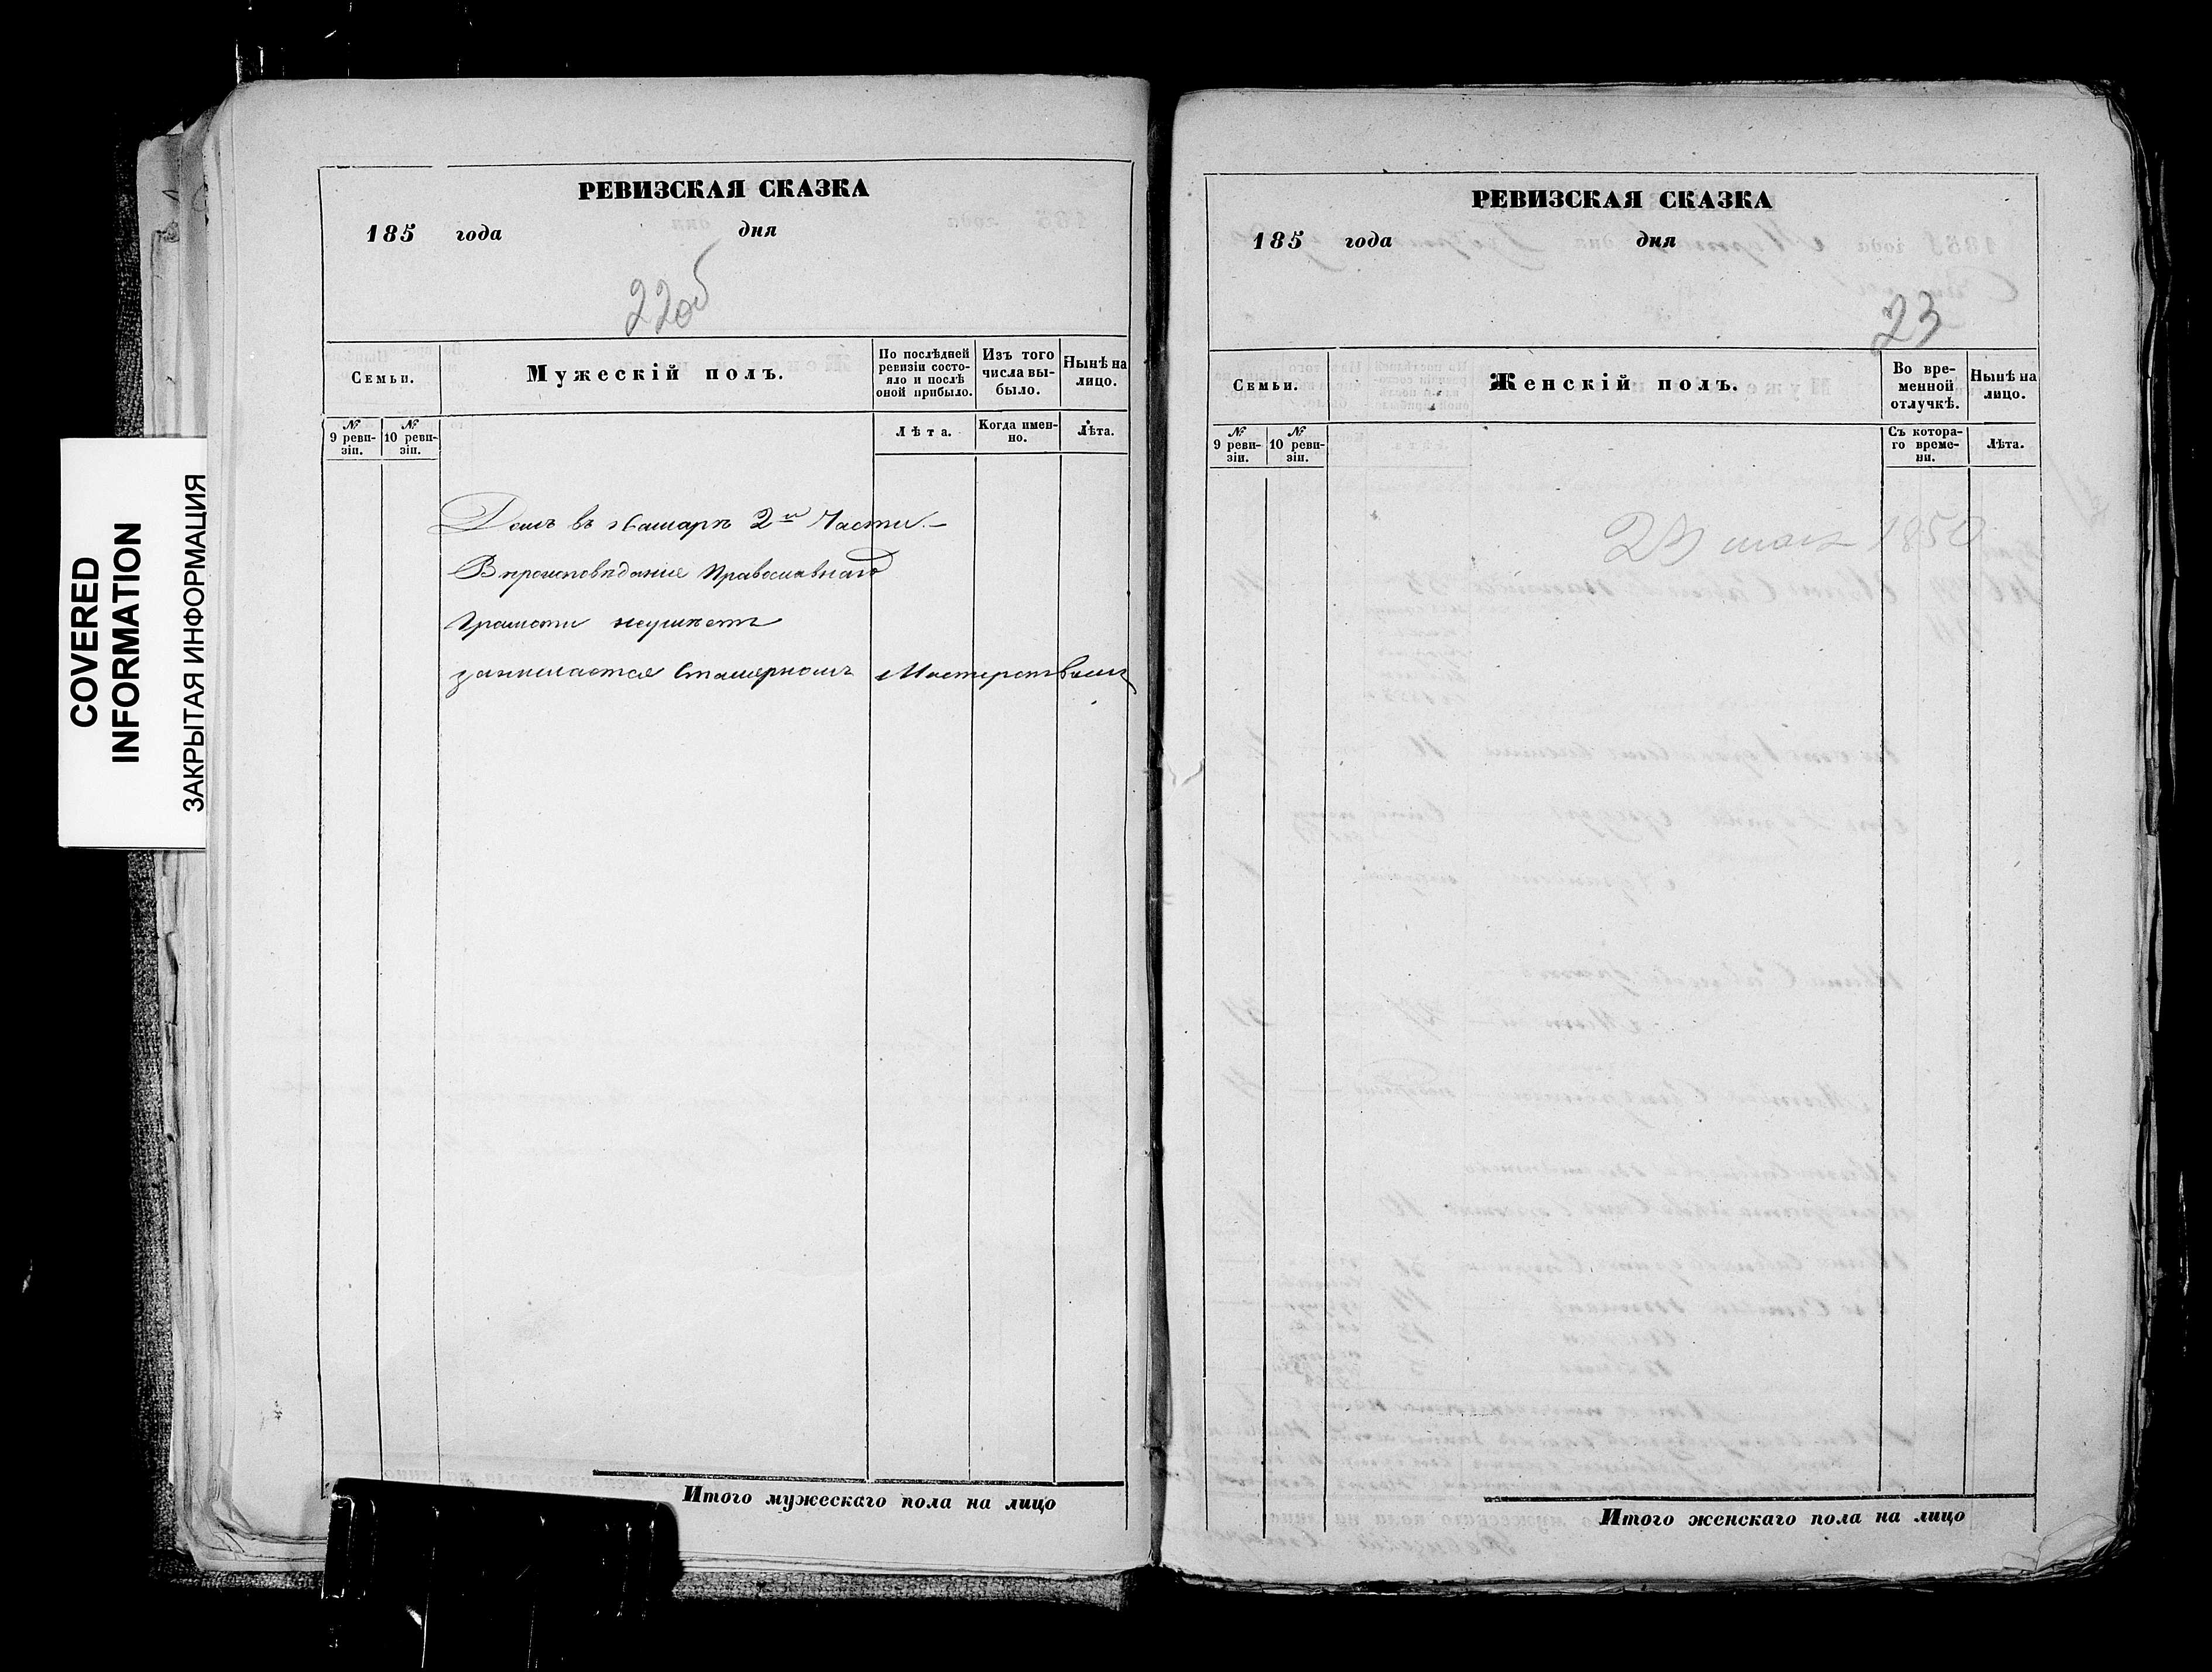 COVERED
INFORMATION
ЗАКРЫТАЯ ИНФОРМАЦИЯ
РЕВИЗСКАЯ СКАЗКА
185 года дня
22об
Семьи.
Мужескій полъ.
По послѣдней ревизіи состояло и послѣ оной прибыло.
Изъ того числа выбыло.
Нынѣ на лицо.
№ 9 ревизіи.
№ 10 ревизіи.
Лѣта.
Когда именно.
Лѣта.
Домъ въ Самарѣ 2й Части.
Вѣроисповѣданіе Православнаго
Грамоти неумѣетъ
занимается Столярномъ Мастерствомъ
Итого мужескаго пола на лицо
РЕВИЗСКАЯ СКАЗКА
185 года дня
23
Семьи.
Женскій полъ.
Во временной отлучкѣ.
Нынѣ на лицо.
№ 9 ревизіи.
№ 10 ревизіи.
Съ котораго времени.
Лѣта.
1850
Итого женскаго пола на лицо